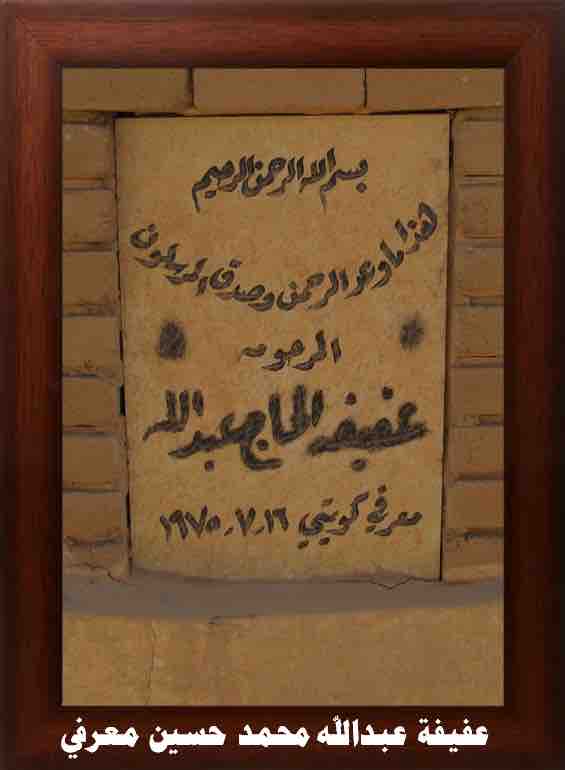 بسم الله الرحمن الرحيم
هذا ما وعد الرحمن وصدق المرسلون
المرحومه
عفيفه الحاج عبدالله
معرفي كويتي ١٩٧٥.٧.١٦
عفيفة عبدالله محمد حسين معرفي